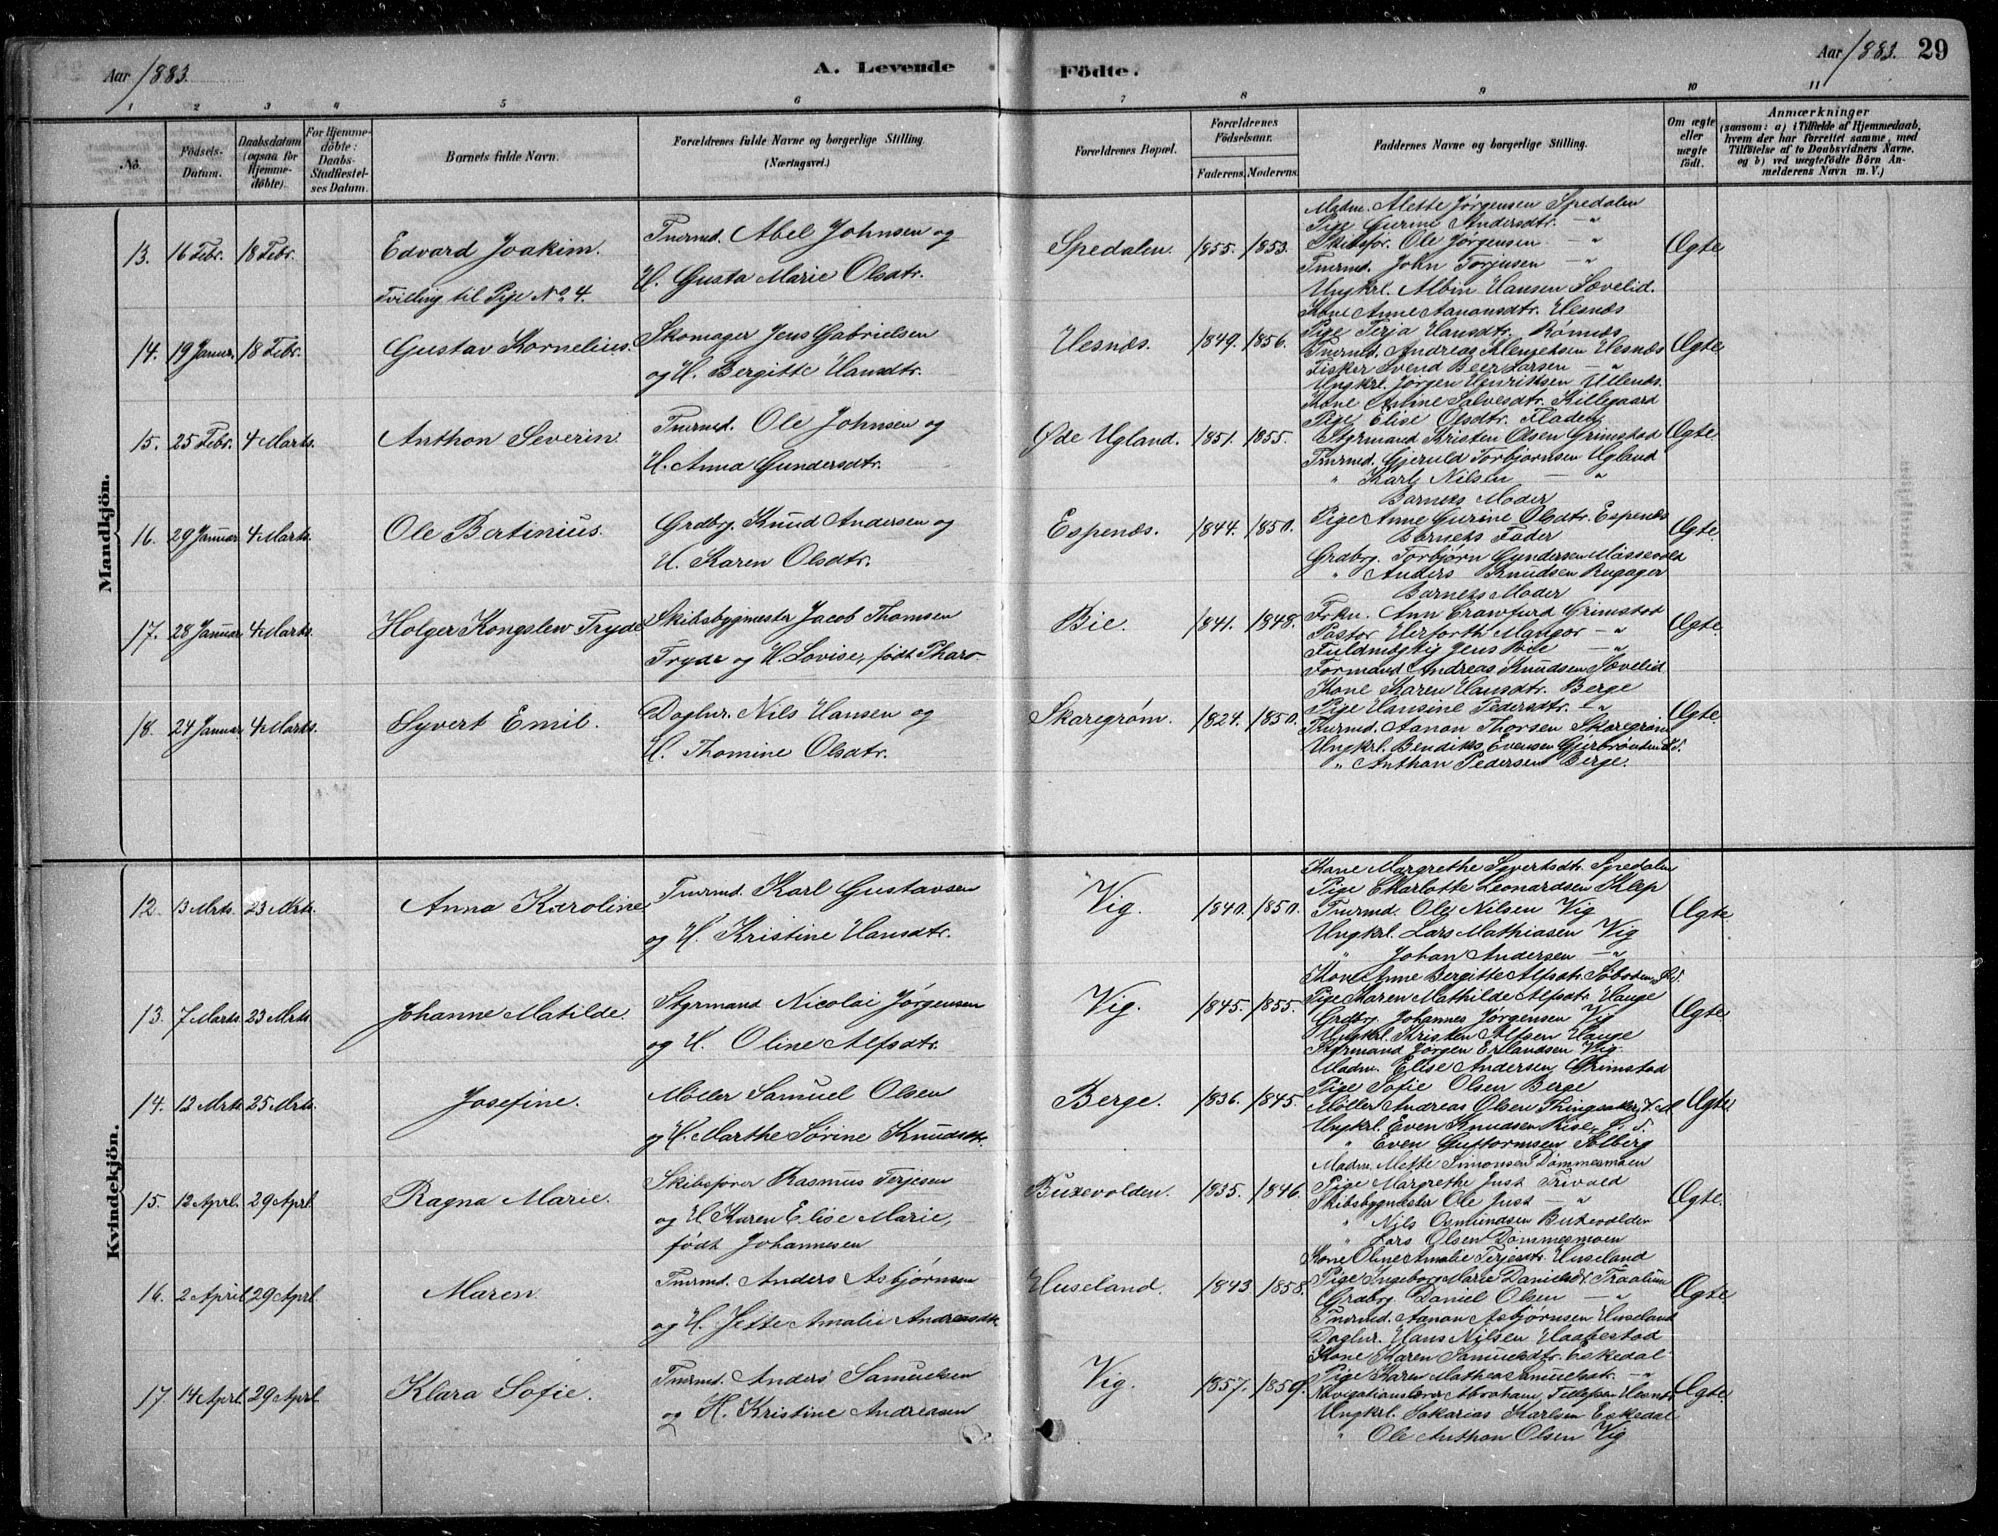 Aar 1883.
A. Levende Födte.
Aar 1883. 29
1 2 3 4 5 6 7 8 9 10 11
No.
Födsels-Datum.
Daabsdatum (ogsaa for Hjemme-döbte).
For Hjemme-döbte: Daabs-Stadfæstel-ses Datum.
Barnets fulde Navn.
Forældrenes fulde Navne og borgerlige Stilling. (Næringsvei.)
Forældrenes Bopæl.
Forældrenes Födselsaar.
Faderens. Moderens.
Faddernes Navne og borgerlige Stilling.
Om ægte eller uægte födt.
Anmærkninger
(saasom: a) i Tilfælde af Hjemmedaab, hvem der har forrettet samme, med Tilföielse af to Daabsvidners Navne. og b) ved uægtefödte Börn An-melderens Navn m. V.)
Mandkjön.
13. 16 Febr. 18 Febr. Edvard Joakim.
Tvilling til Pige No. 4.
Tmrmd. Abel Johnsen og
H. Gusta Marie Olsdtr.
Spedalen. 1855. 1853.
Madm. Alette Jørgensen Spedalen
Pige Gurine Andersdtr. — "
Skibsfør. Ole Jørgensen — "
Tmrmd. John Torjusen — "
Ungkrl. Albin Hansen Sævelid.
Ægte
14. 19 Januar. 18 Febr. Gustav Kornelius.
Skomager Jens Gabrielsen
og H. Bergitte Hansdtr.
Hesnæs. 1849. 1856.
Kone Anne Aanonsdtr. Hesnæs
Pige Terja Hansdtr. Rømnæs
Tmrmd. Andreas Klemetsen Hesnæs
Fisker Svend Beer Larsen — "
Ungkrl. Jørgen Henriksen Ullenæs.
Ægte
15. 25 Febr. 4 Marts. Anthon Severin
Tmrmd. Ole Johnsen og
H. Anna Gundersdtr.
Øde Ugland. 1851. 1855.
Kone Amine Salvesdtr. Killegaard
Pige Elise Olsdtr. Fladen
Styrmand Kristen Olsen Grimstad
Tmrmd. Gjeruld Torbjørnsen Ugland
" Karl Nilsen — "
Ægte
16. 29 Januar 4 Marts. Ole Bertinius.
Grdbrg. Knud Andersen og
H. Karen Olsdtr.
Espenæs. 1844. 1850.
Barnets Moder
Pige Anne Gurine Olsdtr. Espenæs
Barnets Fader
Grdbrg. Torbjørn Gundersen Møssevold
" Anders Knudsen Rugager
Ægte
17. 28 Januar 4 Marts. Holger Kongslew Tryde
Skibsbygmester Jacob Thomsen
Tryde og H. Lovise, født Pharo.
Bie. 1841. 1848.
Barnets Moder
Frkn. Ann Crawfurd Grimstad
Pastor Herforth Mangor — "
Fuldmægtig Jens Bie — "
Formand Andreas Knudsen Sævelid
Ægte
18. 24 Januar 4 Marts. Syvert Emil.
Daglnr. Nils Hansen og
H. Thomine Olsdtr.
Skaregrøm. 1824. 1850.
Kone Karen Hansdtr. Berge
Pige Hansine Pedersdtr. — "
Tmrmd. Aanon Thorsen Skaregrøm
Ungkrl. Bendiks Evensen
" Anthon Pedersen Berge.
Ægte
Kvindekjön.
12. 13 Mrts. 23 Mrts. Anna Karoline
Tmrmd. Karl Gustavsen
og H. Kristine Hansdtr.
Vig. 1840. 1850.
Kone Margrethe Syvertsdtr. Spedalen
Pige Charlotte Leonardsen Klep
Tmrmd. Ole Nilsen Vig
Ungkrl. Lars Mathiasen Vig
" Johan Andersen — "
Ægte
13. 7 Marts. 23 Mrts. Johanne Matilde.
Styrmand Nicolai Jørgensen
og H. Oline Alfsdtr.
Vig. 1845. 1855.
Kone Anne Bergitte Alfsdtr.
Pige Karen Mathilde Alfsdtr. Hauge
Grdbrg. Johannes Jørgensen Vig
Ungkrl. Kristen Alfsen Hauge
Styrmand Jørgen Erlandsen Vig.
Ægte
14. 12 Mrts. 25 Mrts. Josefine.
Møller Samuel Olsen
og H. Marthe Sørine Knudsdtr.
Berge. 1836. 1845.
Madm. Elise Andersen Grimstad
Pige Sofie Olsen Berge
Møller Andreas Olsen Thingsaker, V. M
Ungkrl. Even Knudsen Rise,
" Even Guttormsen Solberg
Ægte
15. 12 Aprl. 29 Aprl. Ragna Marie.
Skibsfører Rasmus Terjesen
og H. Karen Elise Marie,
født Johannesen
Buxevolden. 1835. 1846.
Madm. Mette Simonsen Dømmesmoen
Pige Margrethe Just Frivold
Skibsbygmester Ole Just — "
" Nils Osmundsen Buxevolden
" Lars Olsen Dømmesmoen
Ægte.
16. 2 April 29 Aprl. Maren.
Tmrmd. Anders Asbjørnsen
og H. Jette Amalie Andreasdtr.
Huseland. 1843. 1858.
Kone Oline Amalie Terjesdtr. Huseland
Pige Ingeborg Marie Danielsdtr. Traalum
Grdbrg. Daniel Olsen — "
Tmrmd. Aanon Asbjørnsen Huseland
Daglnr. Hans Nilsen Haabestad
Ægte
17. 14 Aprl. 29 Aprl. Klara Sofie.
Tmrmd. Anders Samuelsen
og H. Kristine Andreasen
Vig. 1857. 1859.
Kone Karen Samuelsdtr. Eskedal
Pige Karen Mathea Samuelsdtr. — "
Navigationslærer Abraham Tellefsen Hesnæs
Ungkrl. Sakarias Karlsen Eskedal
" Ole Anthon Olsen Vig
Ægte